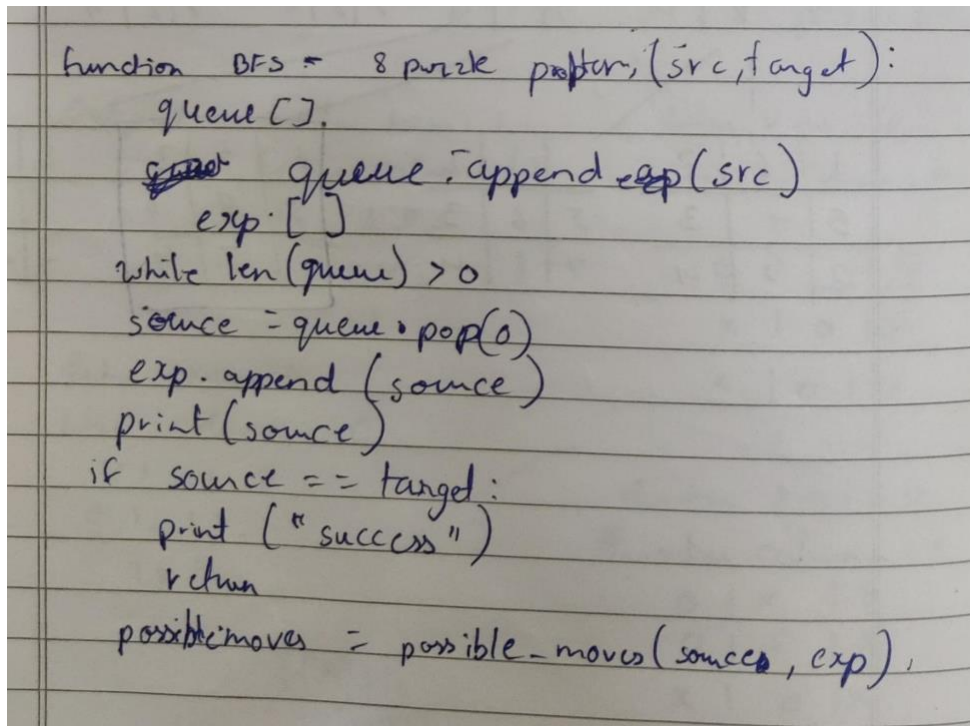 function BFS - 8 puzzle problem, (src, target):
queue [].
queue.append (src)
exp.[]
while len (queue) > 0
source = queue.pop(0)
exp.append (source)
print (source)
if source == target:
print ("success")
return
possible.moves = possible_moves (source, exp),